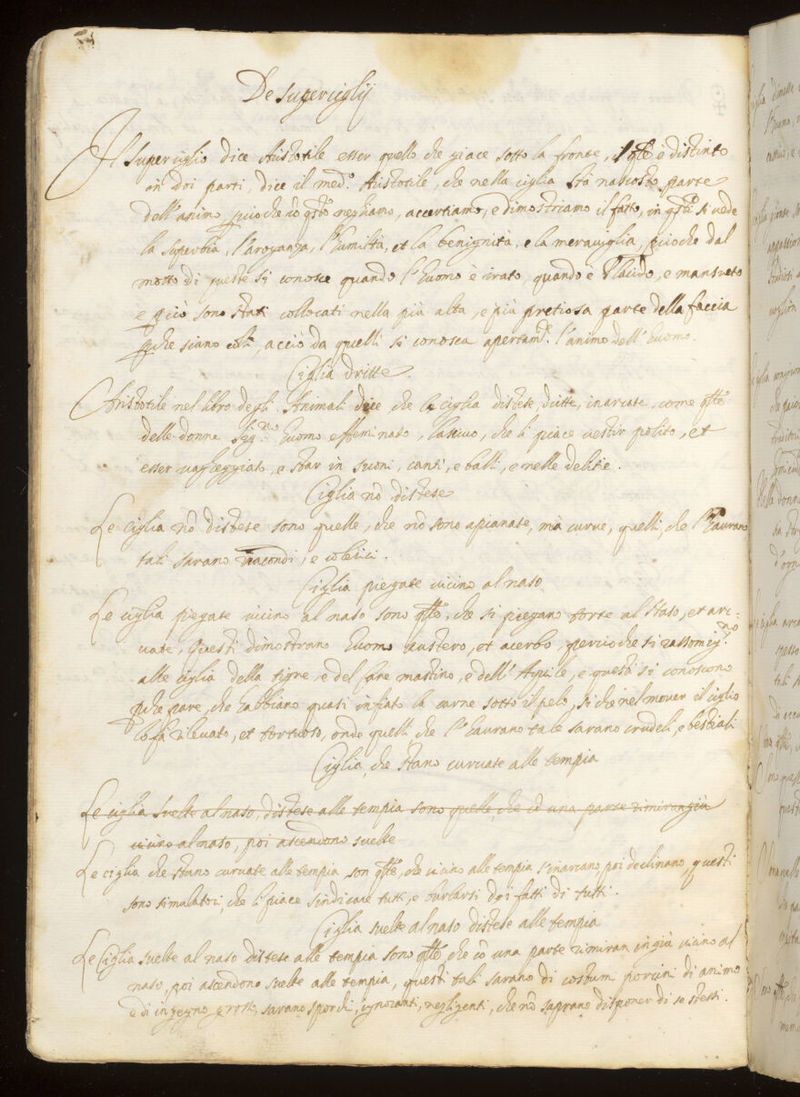 De superciglij
Il superciglio dice Aristotile esser quello che giace sotto la fronte, il qle è distinto
in doi parti, dice il med.o Aristotile, che nella ciglia stà nascosta parte
dell'animo, pciò che cō qsto neghiamo, accertiamo, e dimostriamo il fatto, in qsti si vede
la superbia, l'aroganza, l'humiltà, et la benignità, e la meraviglia, pciò che dal
motto di queste si conosce quando l'huomo è irato, quando è placido, e mansueto
e pciò sono stati collocati nella più alta, e più pretiosa parte della faccia
pche siano colì, acciò da quelli si conosca apertam.te l'animo dell'huomo.
Ciglia dritte.
Aristotile nel libro degli Animali dice, che le ciglia distese, dritte, inarcate, come qlle
delle donne sig.no huomo effeminato, lascivo, che li piace vestir polito, et
esser vagheggiato, e star in suoni, canti, e balli, e nelle delitie.
Ciglia nō distese
Le ciglia nō distese sono quelle, che nō sono apianate, mà curve, quelli, che l'haurano
tali sarano iracondi, e colerici.
Ciglia piegate vicino al naso
Le ciglia piegate vicino al naso sono qlle, che si piegano torte al naso, et arc:
uate, questi dimostrano huomo austero, et acerbo, percioche si rassomig.no
alle ciglia della tigre, e del cane mastino, e dell'Aquile, e questa si conoscono
pche pare, che habbiano quasi infiato la carne sotto il pelo, si che nel mover il ciglio
lo fà rilevato, et tortuoso, onde quelli che l'haurano tale sarano crudeli, e bestiali
Ciglia, che stano curvate alle tempia
Le ciglia svelte al naso, distese alle tempia sono quelle, che cō una parte rimirangiù
vicino al naso, poi ascendono svelte
Le ciglia che stano curvate alle tempia son qlle, che vicino alle tempia s'inarcano, poi declinano, questi
sono simulatori, che li piace sindicare tutti, e burlarsi doi fatti di tutti.
Ciglia svelte al naso distese alle tempia
Le Ciglia svelte al naso distese alle tempia sono qlle che cō una parte rimiran ingiù vicino al
naso, poi ascendono svelte alle tempia, questi tali sarano di costumi porcini di animo
e di ingegno grossi, sarano sporchi, ignoranti, negligenti, che nō saprano disponer di se stessi.